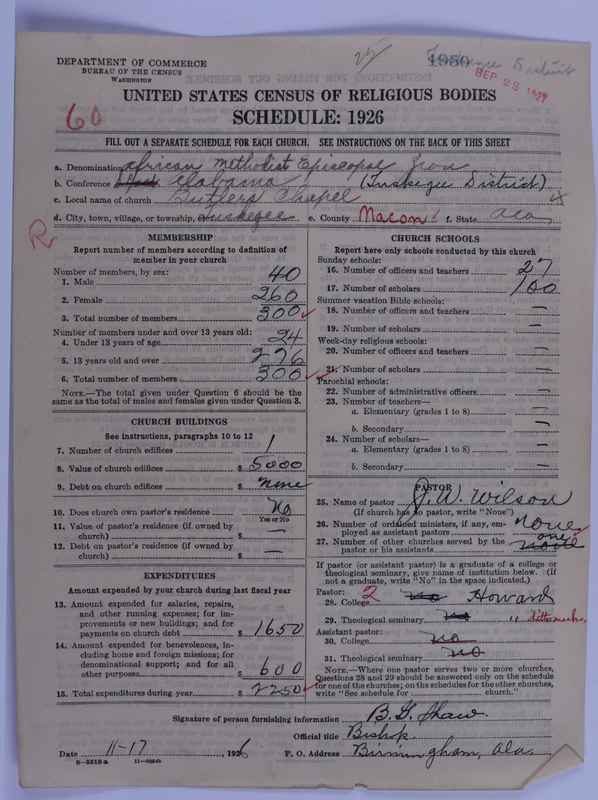 DEPARTMENT OF COMMERCE
BUREAU OF THE CENSUS
WASHINGTON
1950
Tuskegee District
SEP 28 1927
60
UNITED STATES CENSUS OF RELIGIOUS BODIES
SCHEDULE: 1926
FILL OUT A SEPARATE SCHEDULE FOR EACH CHURCH. SEE INSTRUCTIONS ON THE BACK OF THIS SHEET
a. Denomination African Methodist Episcopal Zion
b. Conference Alabama (Tuskegee District)
c. Local name of church Butlers Chapel
d. City, town, village, or township, Tuskegee e. County Macon f. State Ala
R
MEMBERSHIP
Report number of members according to definition of
member in your church
Number of members, by sex:
1. Male 40
2. Female 260
3. Total number of members 300
Number of members under and over 13 years old:
4. Under 13 years of age 24
5. 13 years old and over 276
6. Total number of members 300
NOTE.—The total given under Question 6 should be the
same as the total of males and females given under Question 3.
CHURCH BUILDINGS
See instructions, paragraphs 10 to 12
7. Number of church edifices 1
8. Value of church edifices $ 5000
9. Debt on church edifices $ none
10. Does church own pastor's residence No
Yes or No
11. Value of pastor's residence (if owned by
church) $ —
12. Debt on pastor's residence (if owned by
church) $ —
EXPENDITURES
Amount expended by your church during last fiscal year
13. Amount expended for salaries, repairs,
and other running expenses; for im-
provements or new buildings; and for
payments on church debt $ 1650
14. Amount expended for benevolences, in-
cluding home and foreign missions; for
denominational support; and for all
other purposes $ 600
15. Total expenditures during year $ 2250
CHURCH SCHOOLS
Report here only schools conducted by this church
Sunday schools:
16. Number of officers and teachers 27
17. Number of scholars 100
Summer vacation Bible schools:
18. Number of officers and teachers —
19. Number of scholars —
Week-day religious schools:
20. Number of officers and teachers —
21. Number of scholars —
Parochial schools:
22. Number of administrative officers —
23. Number of teachers—
a. Elementary (grades 1 to 8) —
b. Secondary —
24. Number of scholars—
a. Elementary (grades 1 to 8) —
b. Secondary —
PASTOR
25. Name of pastor J. W. Wilson
(If church has no pastor, write "None")
26. Number of ordained ministers, if any, em-
ployed as assistant pastors none
27. Number of other churches served by the
pastor or his assistants none one
If pastor (or assistant pastor) is a graduate of a college or
theological seminary, give name of institution below. (If
not a graduate, write "No" in the space indicated.)
Pastor: 2
28. College no Howard
29. Theological seminary no "
Assistant pastor:
30. College no
31. Theological seminary no
NOTE.—Where one pastor serves two or more churches,
Questions 28 and 29 should be answered only on the schedule
for one of the churches; on the schedules for the other churches,
write "See schedule for church."
Signature of person furnishing information B. G. Shaw.
Official title Bishop
Date 11-17, 1926 P. O. Address Birmingham, Ala.
8—5518 a 11—9254b